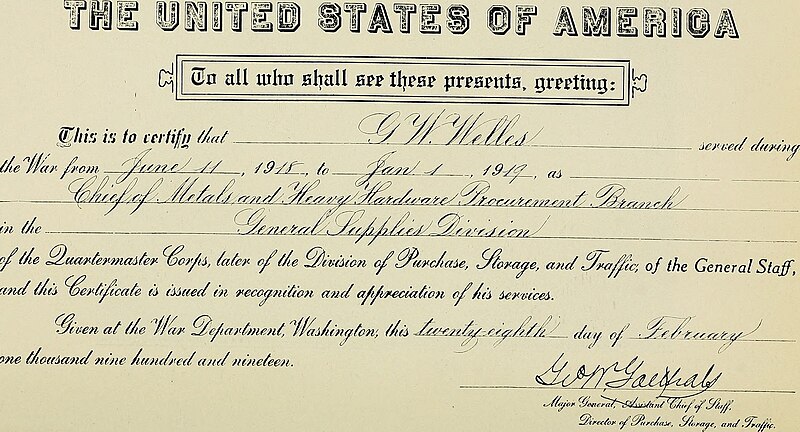 THE UNITED STATES OF AMERICA
To all who shall see these presents, greeting:
This is to certify that G W. Welles served during
the War from June 11, 1918, to Jan 1, 1919, as
Chief of Metals and Heavy Hardware Procurement Branch
in the General Supplies Division
of the Quartermaster Corps, later of the Division of Purchase, Storage, and Traffic, of the General Staff,
and this Certificate is issued in recognition and appreciation of his services.
Given at the War Department, Washington, this twenty-eighth day of February
one thousand nine hundred and nineteen.
Geo W. Goethals
Major General, Assistant Chief of Staff,
Director of Purchase, Storage, and Traffic.